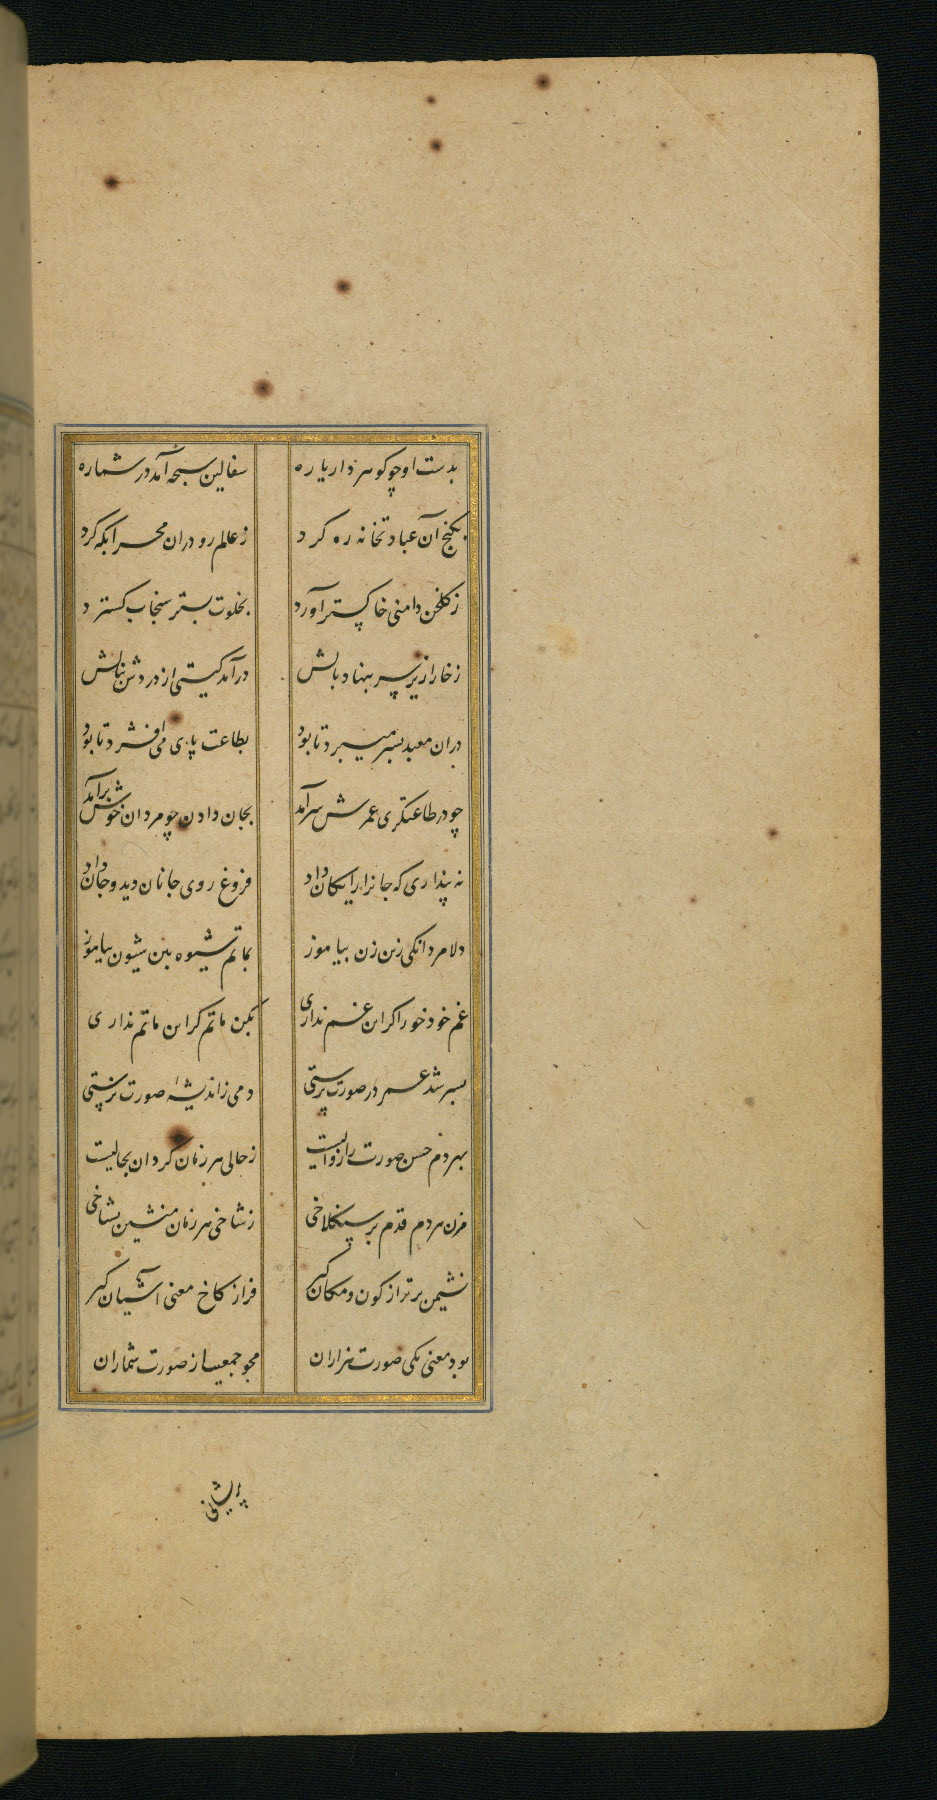 بدست او چو کوهر دار یاره سفالین سبحه آمد در شماره
بکنج آن عبادتخانه ره کرد ز عالم رو دران محرابکه کرد
ز کلخن دامنی خاکستر آورد بخلوت بستر سنجاب کسترد
ز خارا زیر سر بنهاد بالش در آمد کیتی از درد ش بنالش
دران معبد بسر میبرد تا بود بطاعت پای می افشرد تا بود
چو در طاعتکری عمرش سر آمد بجان دادن چو مردان خوش بر آمد
نه پنداری که جانرا رایکان داد فروغ روی جانان دید و جان داد
دلا مردانکی زین زن بیاموز بماتم شیوه بین شیون بیاموز
غم خود خور اکر این غم نداری بکن ماتم کر این ماتم نداری
بسر شد عمر در صورت پرستی دمی ز اندیشه صورت نرستی
بهر دم حسن صورت را زوالیست ز حالی هر زمان کردان بحالیست
مزن هر دم قدم بر سنکلاخی ز شاخی هر زمان منشین بشاخی
نشیمن برتر از کون و مکان کیر فراز کاخ معنی آشیان کیر
بود معنی یکی صورت هزاران مجو جمعیت از صورت شماران
پریشانی